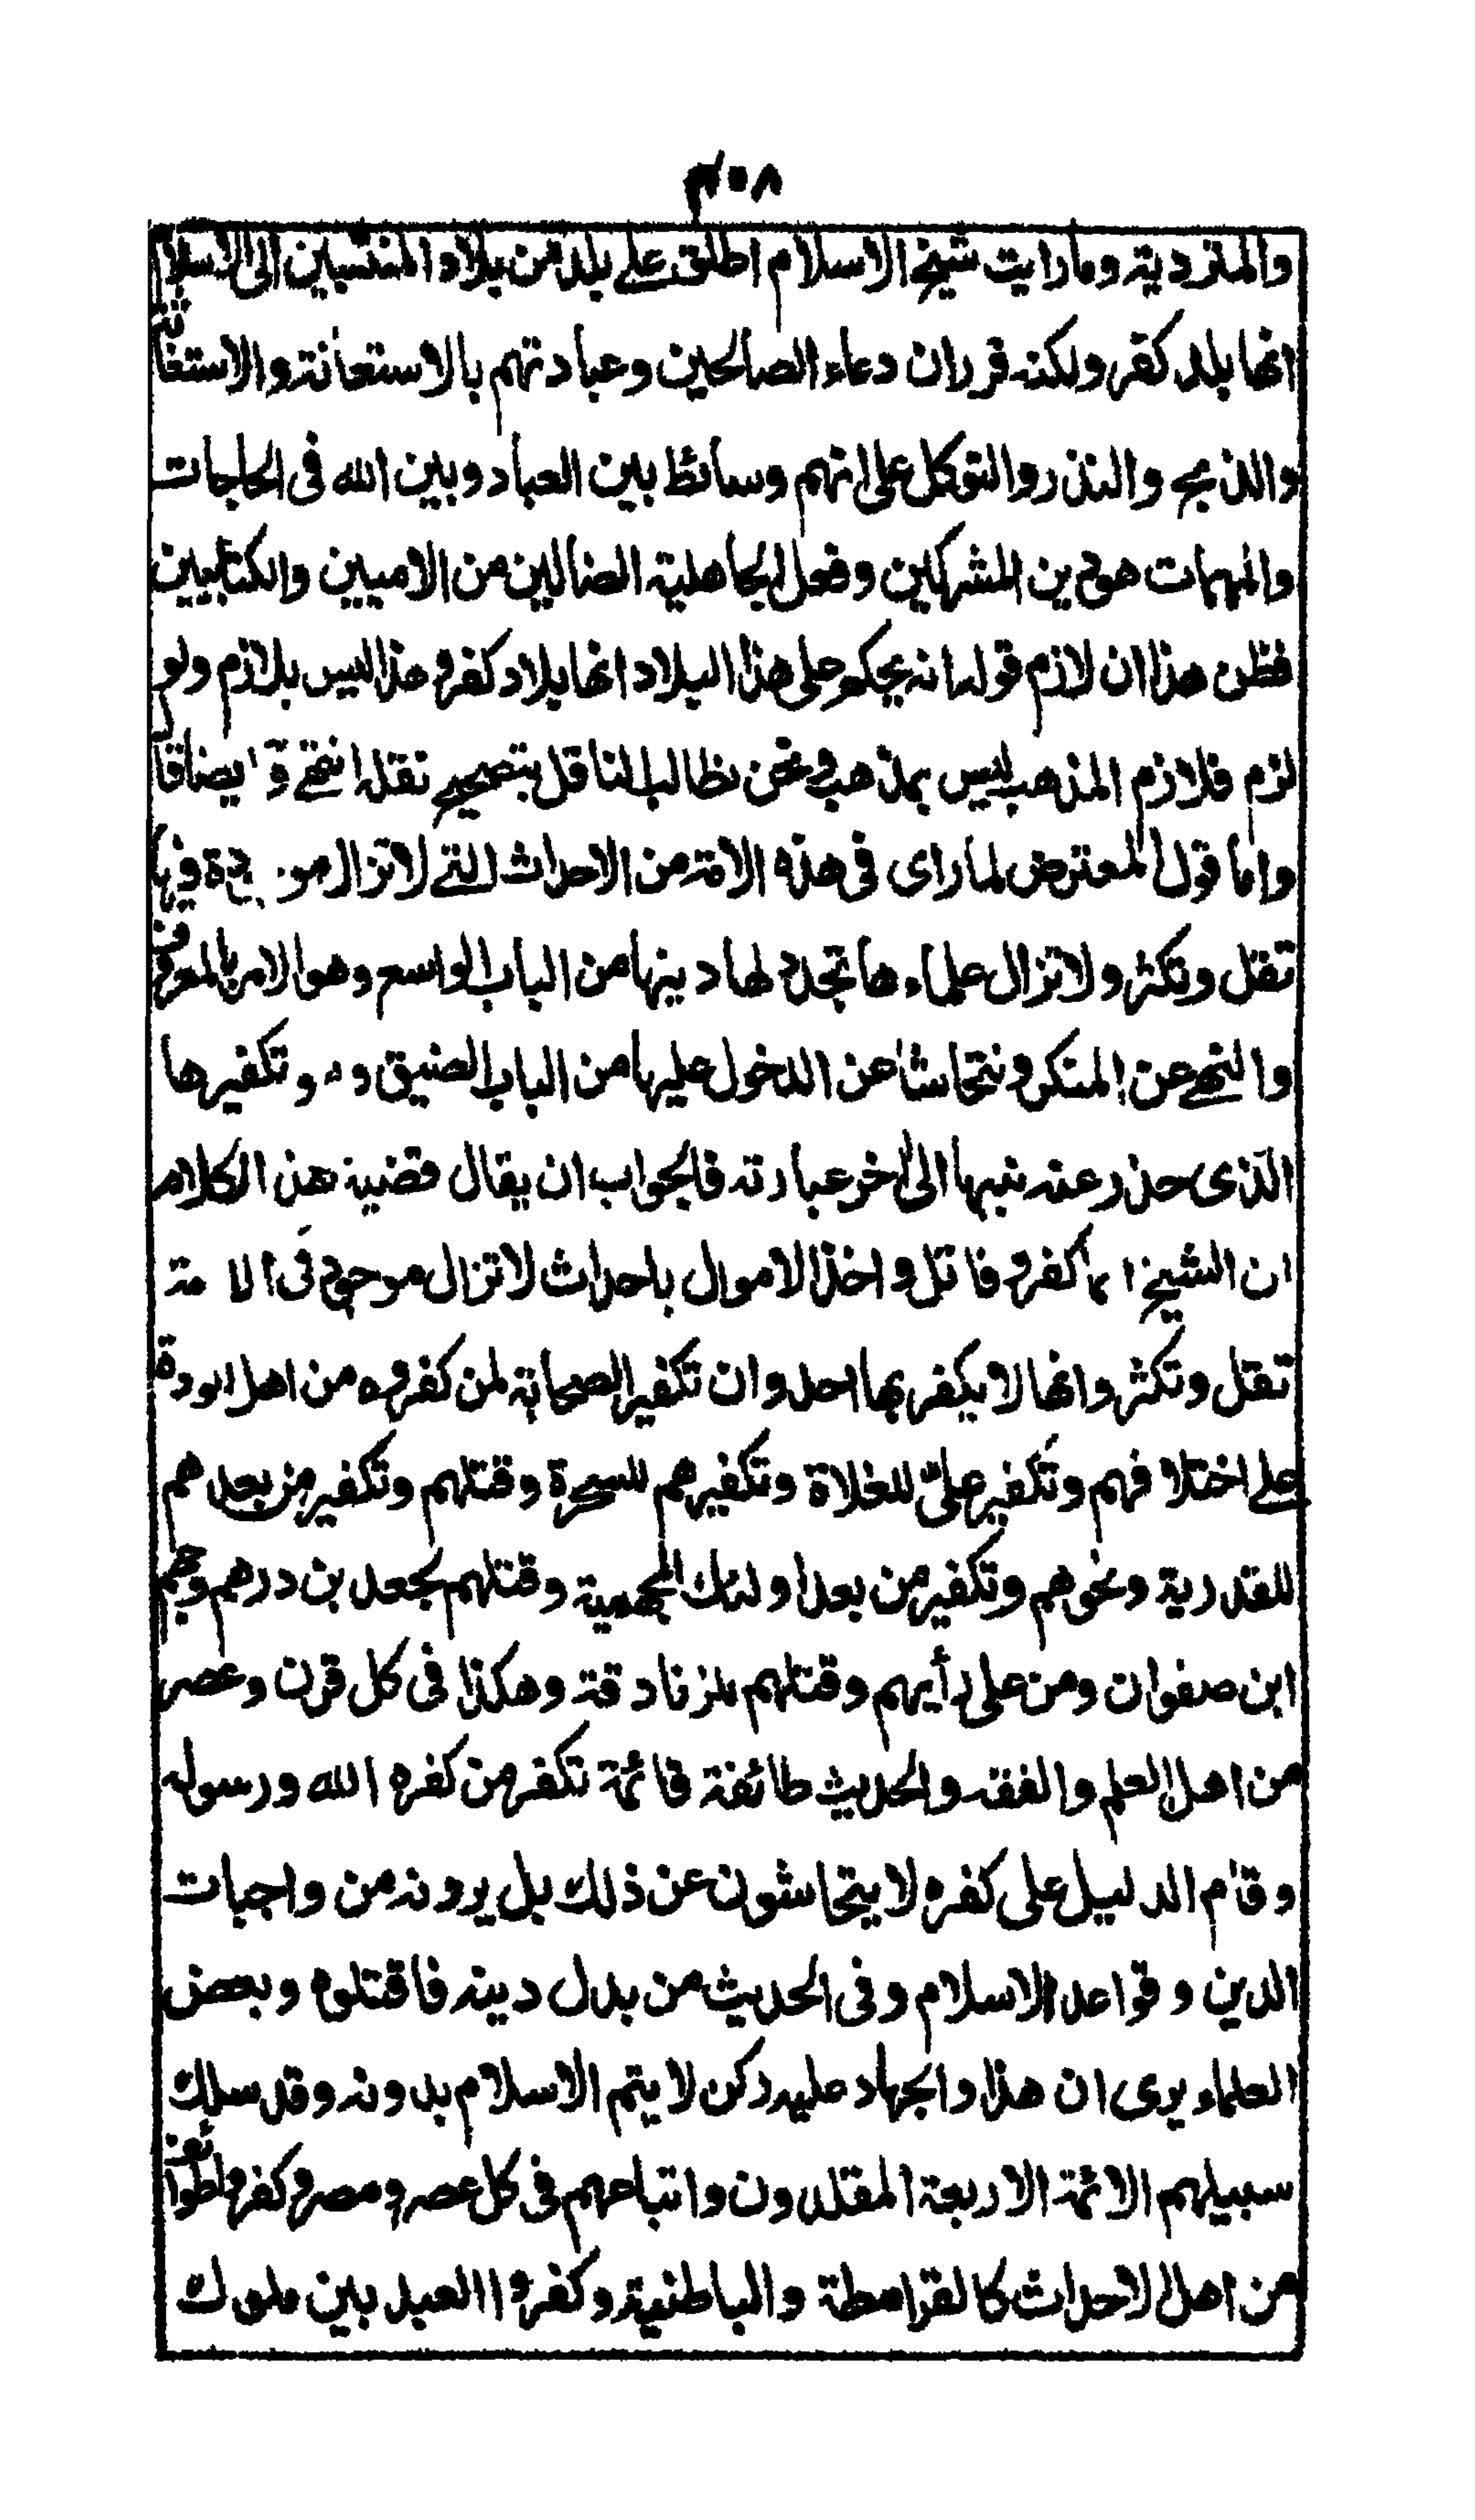 ٣٠٨
والمتردية وما رايت شيخ الاسلام اطلق على بلد من بلاد المنتسبين الى الاسلام
انها بلد كفر ولكنه قرر ان دعاء الصالحين وعبادتهم بالاستعانة والاستغاثة
والذبح والنذر والتوكل على انهم وسائط بين العباد وبين الله في الحاجات
والمهمات هو دين المشركين وفعل الجاهلية الضالين من الاميين والكتابيين
فظن هذا ان لازم قوله انه يحكم على هذا البلاد انها بلاد كفر وهذا ليس بلازم ولو
لزم فلازم المذهب ليس بمذهب ونحن نطالب الناقل بتصحيح نقله انتهى وقال ايضا
واما قول المعترض لما راى في هذه الامة من الاحداث التي لا تزال موجودة فيها
تقل وتكثر ولا تزال علماءها تجدد لها دينها من الباب الواسع وهو الامر بالمعروف
والنهي عن المنكر ونتحاشا عن الدخول عليها من الباب الضيق وهو تكفيرها
الذى حذر عنه نبيها الى اخر عبارته فالجواب ان يقال قضية هذا الكلام
ان الشيخ كفر وقاتل واخذ الاموال باحداث لا تزال موجودة في الامة
تقل وتكثر وانها لا يكفر بها احد وان تكفير الصحابة لمن كفروه من اهل الردة
على اختلافهم وتكفير علي للغلاة وتكفيرهم للسحرة وقتلهم وتكفير من بعدهم
للقدرية ونحوهم وتكفير من بعد اولئك للجهمية وقتلهم لجعد بن درهم وجهم
ابن صفوان ومن على رأيهم وقتلهم للزنادقة وهكذا في كل قرن وعصر
من اهل العلم والفقه والحديث طائفة قائمة تكفر من كفره الله ورسوله
وقام الدليل على كفره لا يتحاشون عن ذلك بل يرونه من واجبات
الدين وقواعد الاسلام وفي الحديث من بدل دينه فاقتلوه وبعض
العلماء يرى ان هذا والجهاد عليه ركن لا يتم الاسلام بدونه وقد سلك
سبيلهم الائمة الاربعة المقلدون واتباعهم في كل عصر ومصر وكفروا طوائف
من اهل الاحداث كالقرامطة والباطنية وكفروا العبيديين ملوك